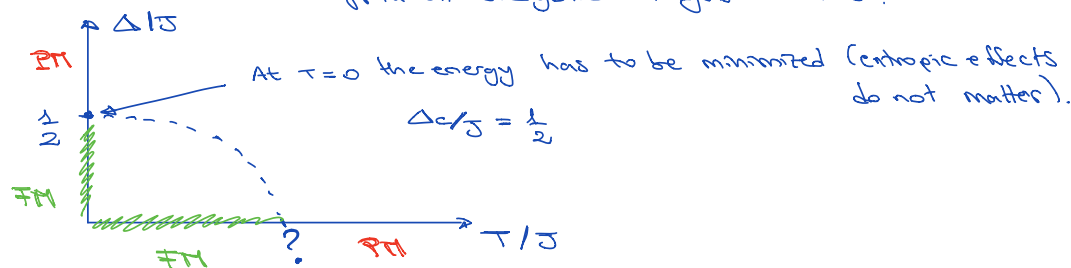 Δ/J
PM
At T=0 the energy has to be minimized (entropic effects
do not matter).
1/2
Δc/J = 1/2
FM
?
T/J
FM
PM